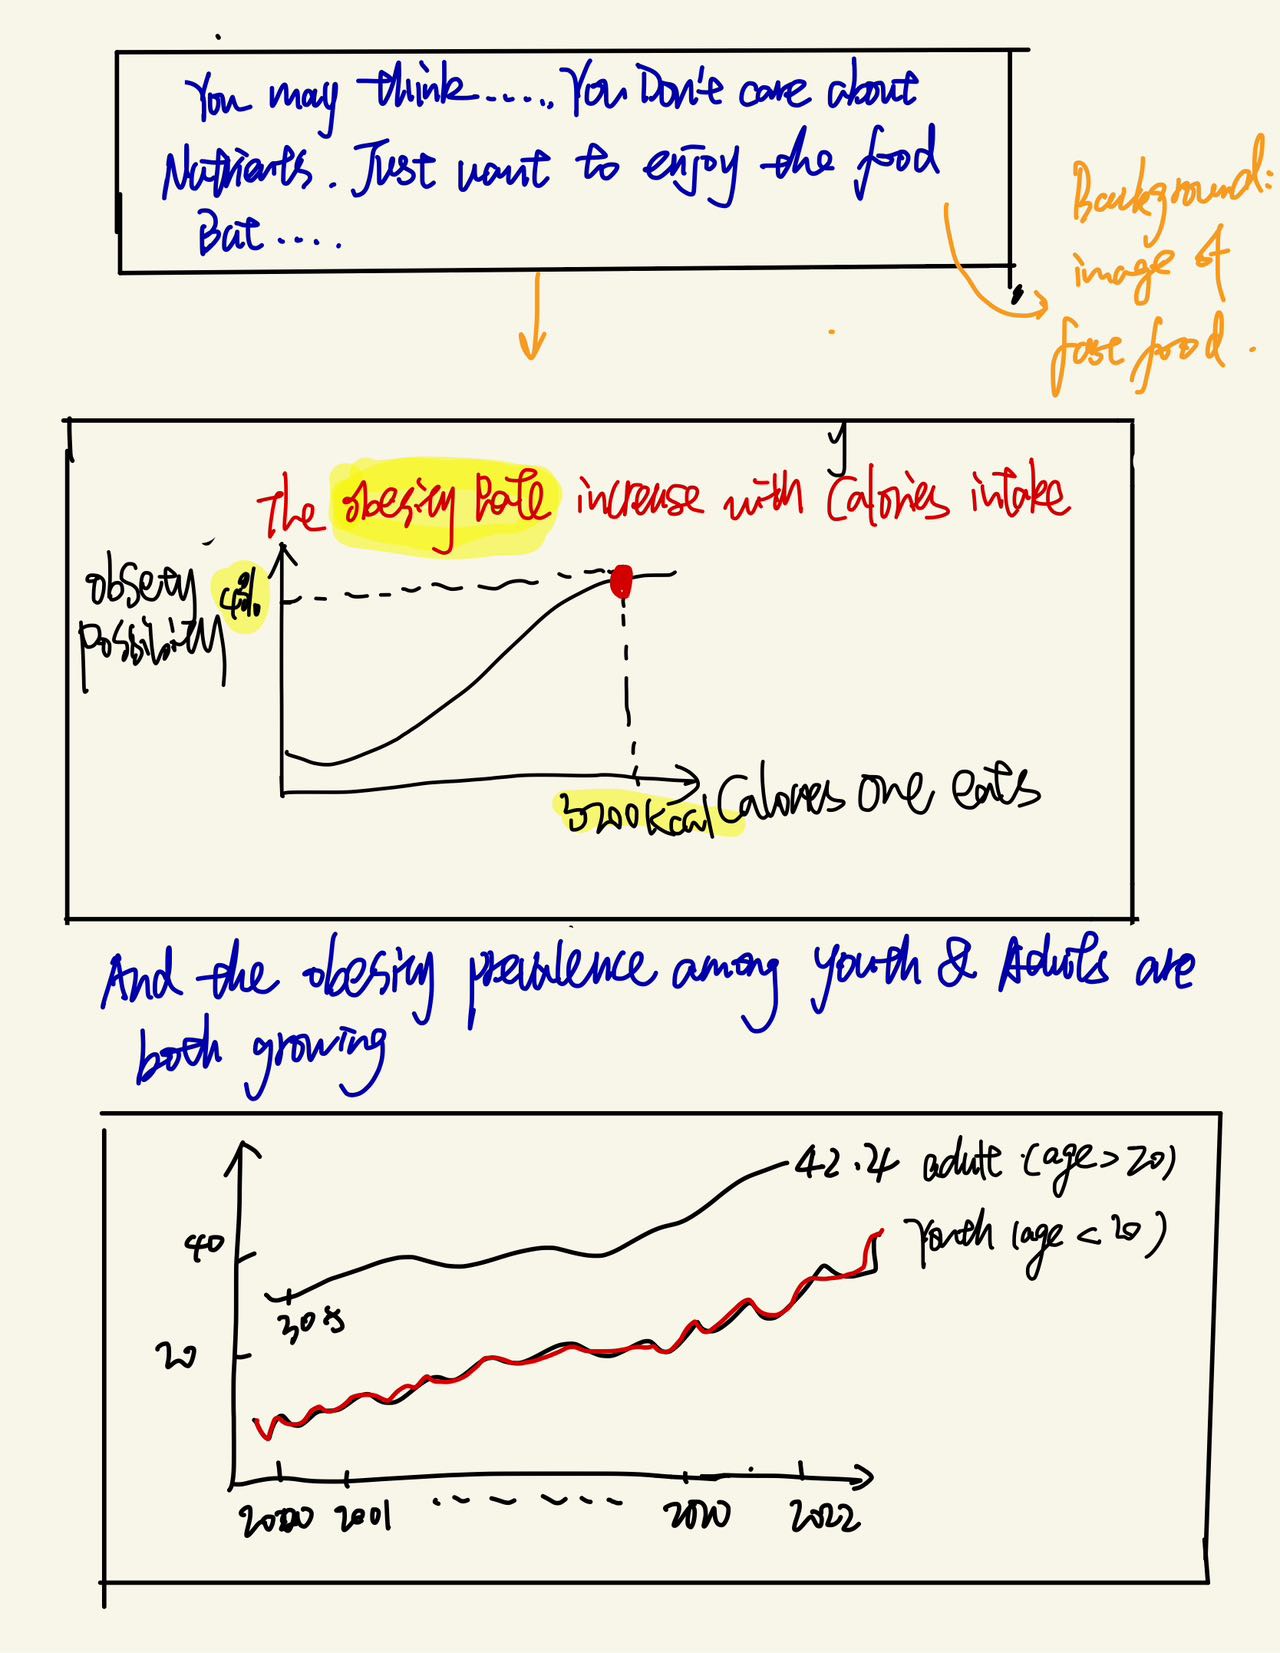 You may think...... You Don't care about
Nutrients. Just want to enjoy the food
But....
Background:
image of
fast food.
y
The obesity Rate increase with Calories intake
obsety
possibility
3700 Kcal Calories one eats
And the obesity prevalence among youth & Adults are
both growing
42.4 adult (age > 20)
Youth (age < 20)
40
20
2000 2001 2020 2022